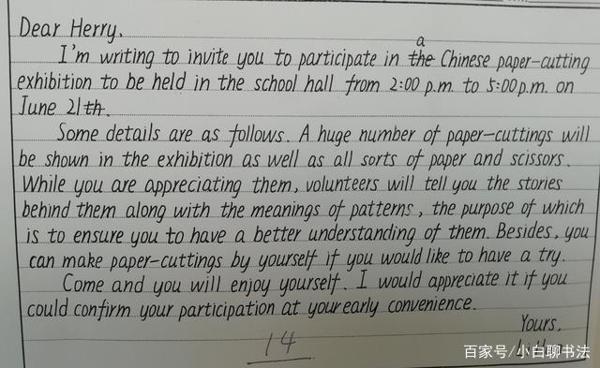 Dear Herry,
a
I'm writing to invite you to participate in the Chinese paper-cutting
exhibition to be held in the school hall from 2:00 p.m. to 5:00 p.m. on
June 21th.
Some details are as follows. A huge number of paper-cuttings will
be shown in the exhibition as well as all sorts of paper and scissors.
While you are appreciating them, volunteers will tell you the stories
behind them along with the meanings of patterns, the purpose of which
is to ensure you to have a better understanding of them. Besides, you
can make paper-cuttings by yourself if you would like to have a try.
Come and you will enjoy yourself. I would appreciate it if you
could confirm your participation at your early convenience.
Yours,
14
百家号/小白聊书法